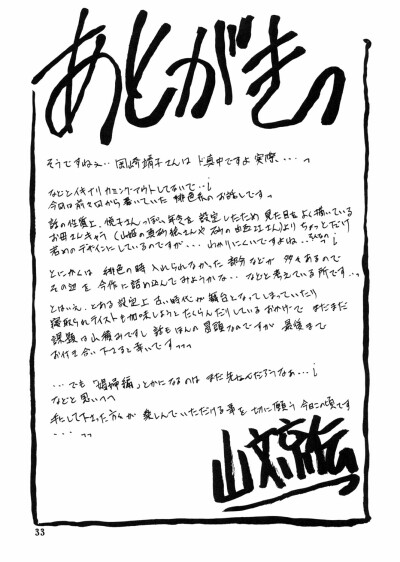 あとがきっ
そうですねぇ…岡崎靖子さんは ド真中ですよ実際、・・っ
などとイキナリ カミング・アウトしてないで…i
今回は前々回から書いていた 桃色系のお話しですっ
話の性質上、悦子さんっぽい年令を 設定したため 見た目も よく描いている
お母さんキャラ
より ちょっとだけ
若めの デザインにしているのですが・・・ わかりにくいですよね・・
とにかくは 桃色の時 入れられなかった 部分などが 多々あるので
その辺を 今作に 詰め込んでみようかな・・ などと考えている所です・・っ
とはいえ、とある設定上 古い時代が 舞台となってしまっていたり
寝取られテイストも 加味しようと たくらんだりしている おかげで まだまだ
課題は山積みですし 話も ほんの冒頭なのですが 最後まで
お付き合い下さると 幸いですっっっ
・・・でも「娼婦編」とかになるのは まだ先なんだろうなぁ・・・i
などと思いつつ
手にして下さった方々が 楽しんでいただける事を 切に願う 今日この頃です
・・・っっ
山文京伝っ
33